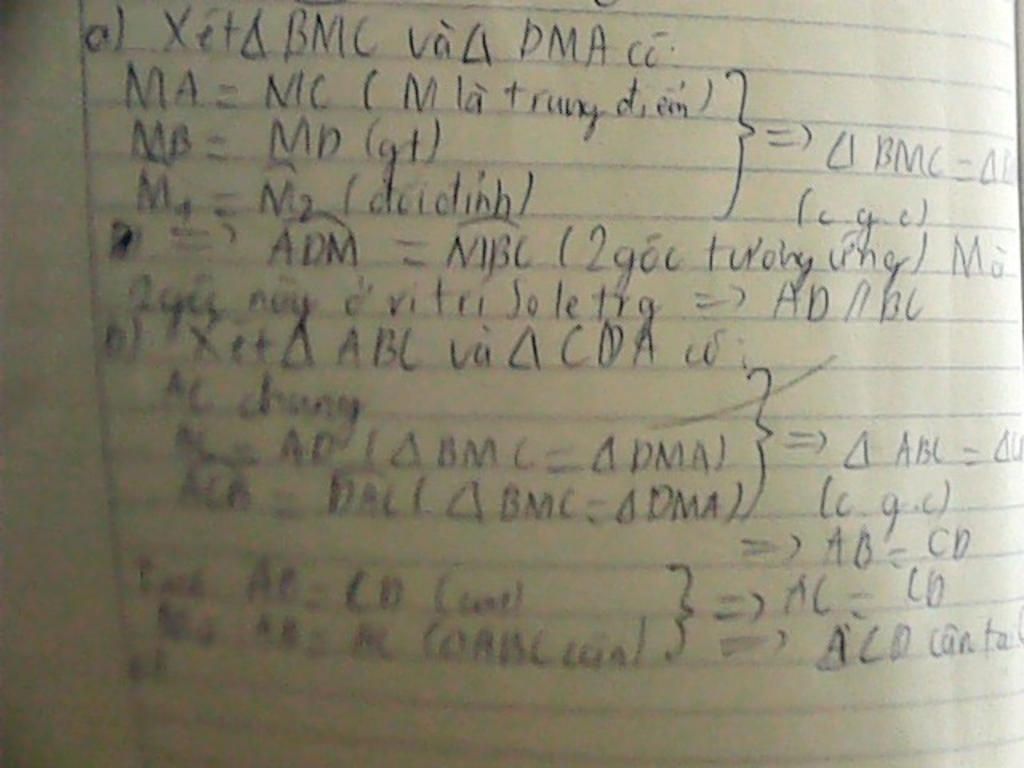 a) Xét Δ BMC và Δ DMA có:
MA = MC ( M là trung điểm)
MB = MD (gt)
=> Δ BMC = Δ
M̂1 = M̂2 (đối đỉnh)
(c.g.c)
=> ADM = MBC (2 góc tương ứng) Mà
2 góc này ở vị trí so le trg => AD // BC
b) Xét Δ ABC và Δ CDA có:
AC chung
= AD ( Δ BMC = Δ DMA)
=> Δ ABC = Δ
ACB = DAC ( Δ BMC = Δ DMA)
(c.g.c)
=> AB = CD
AB = CD (cmt)
=> AC = CD
AB = AC (Δ ABC cân)
=> ACD cân